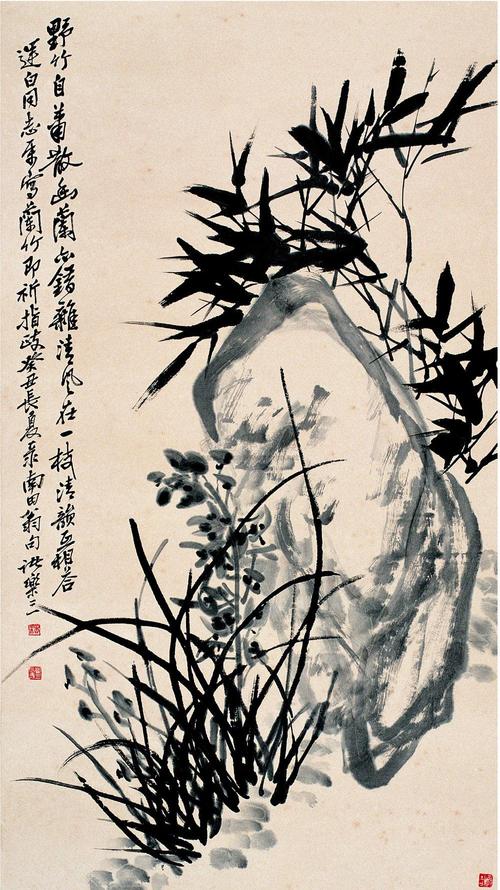 野竹自萧散幽兰亦错杂清风在一枝清韵互相答
逆白同志属写兰竹即祈指政癸丑长夏录南田翁句诸乐三